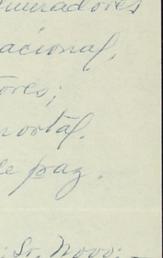 meradores
nacional,
tores;
mortal,
de paz.
Sr. Novo: